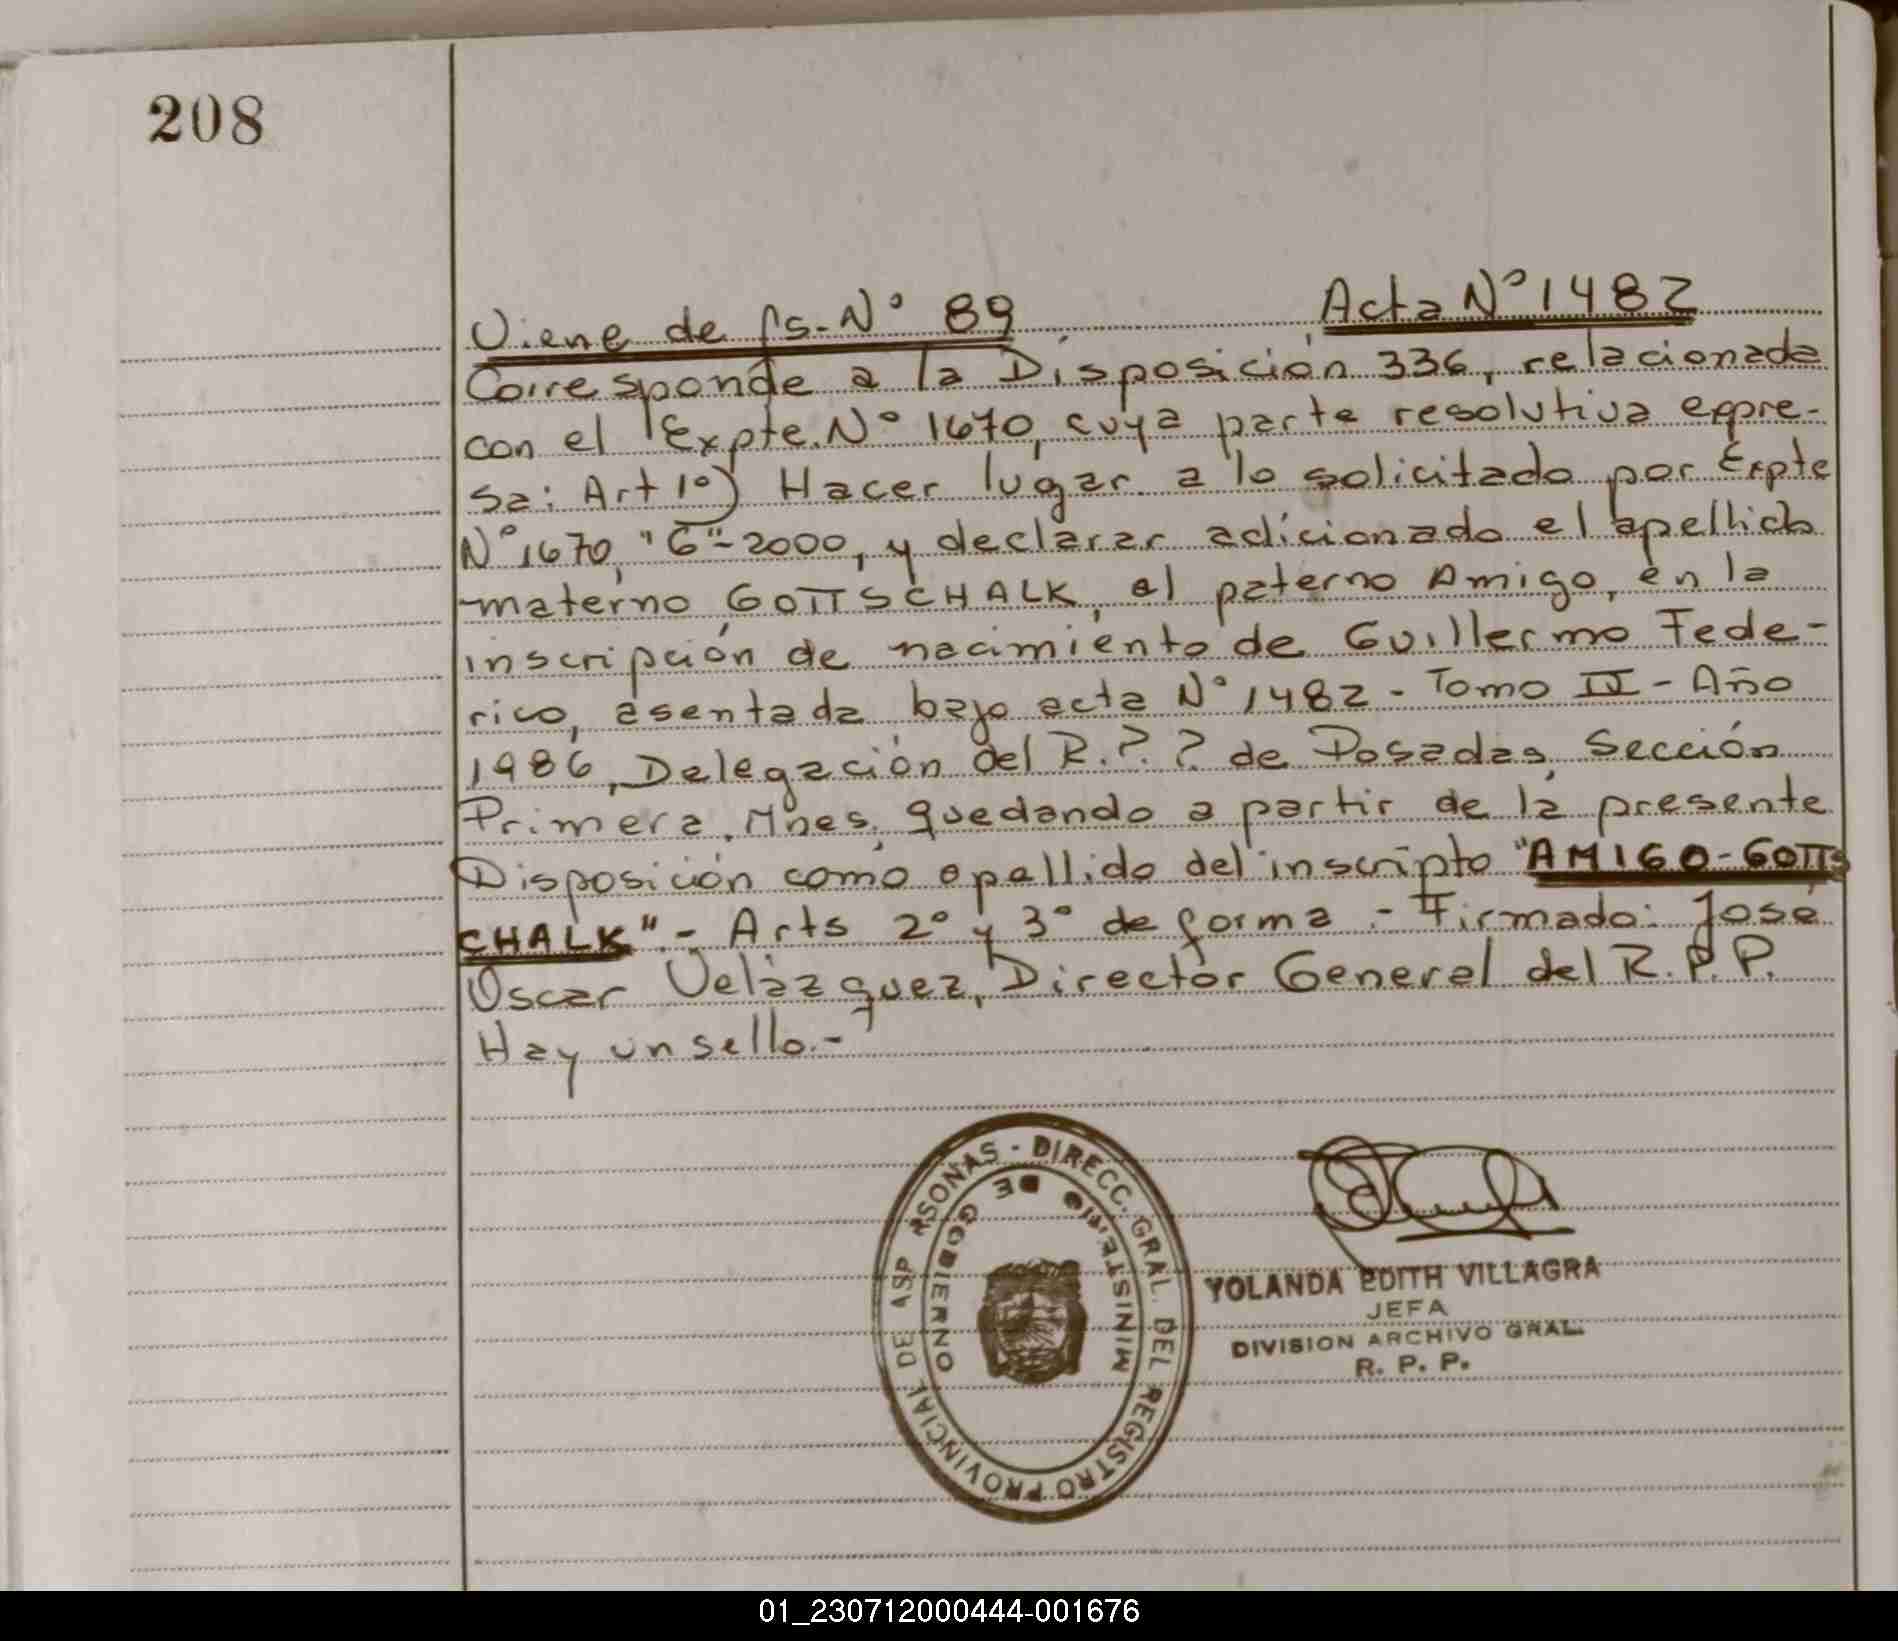 208
Viene de fs. Nº 89 Acta Nº 1482
Corresponde a la Disposición 336, relacionada
con el Expte. Nº 1670, cuya parte resolutiva expre-
sa: Art 1º) Hacer lugar a lo solicitado por Expte
Nº 1670, "G"-2000, y declarar adicionado el apellido
materno GOTTSCHALK, al paterno Amigo, en la
inscripción de nacimiento de Guillermo Fede-
rico, asentada bajo acta Nº 1482 - Tomo II - Año
1986, Delegación del R.P.P. de Posadas, Sección
Primera, Mnes, quedando a partir de la presente
Disposición como apellido del inscripto "AMIGO-GOTTS
CHALK".- Arts 2º y 3º de forma.- Firmado: José
Oscar Velázquez, Director General del R.P.P.
Hay un sello.-
DIRECC. GRAL. DEL REGISTRO PROVINCIAL DE
RSONAS
MINISTERIO DE GOBIERNO
YOLANDA EDITH VILLAGRA
JEFA
DIVISION ARCHIVO GRAL.
R. P. P.
01_230712000444-001676